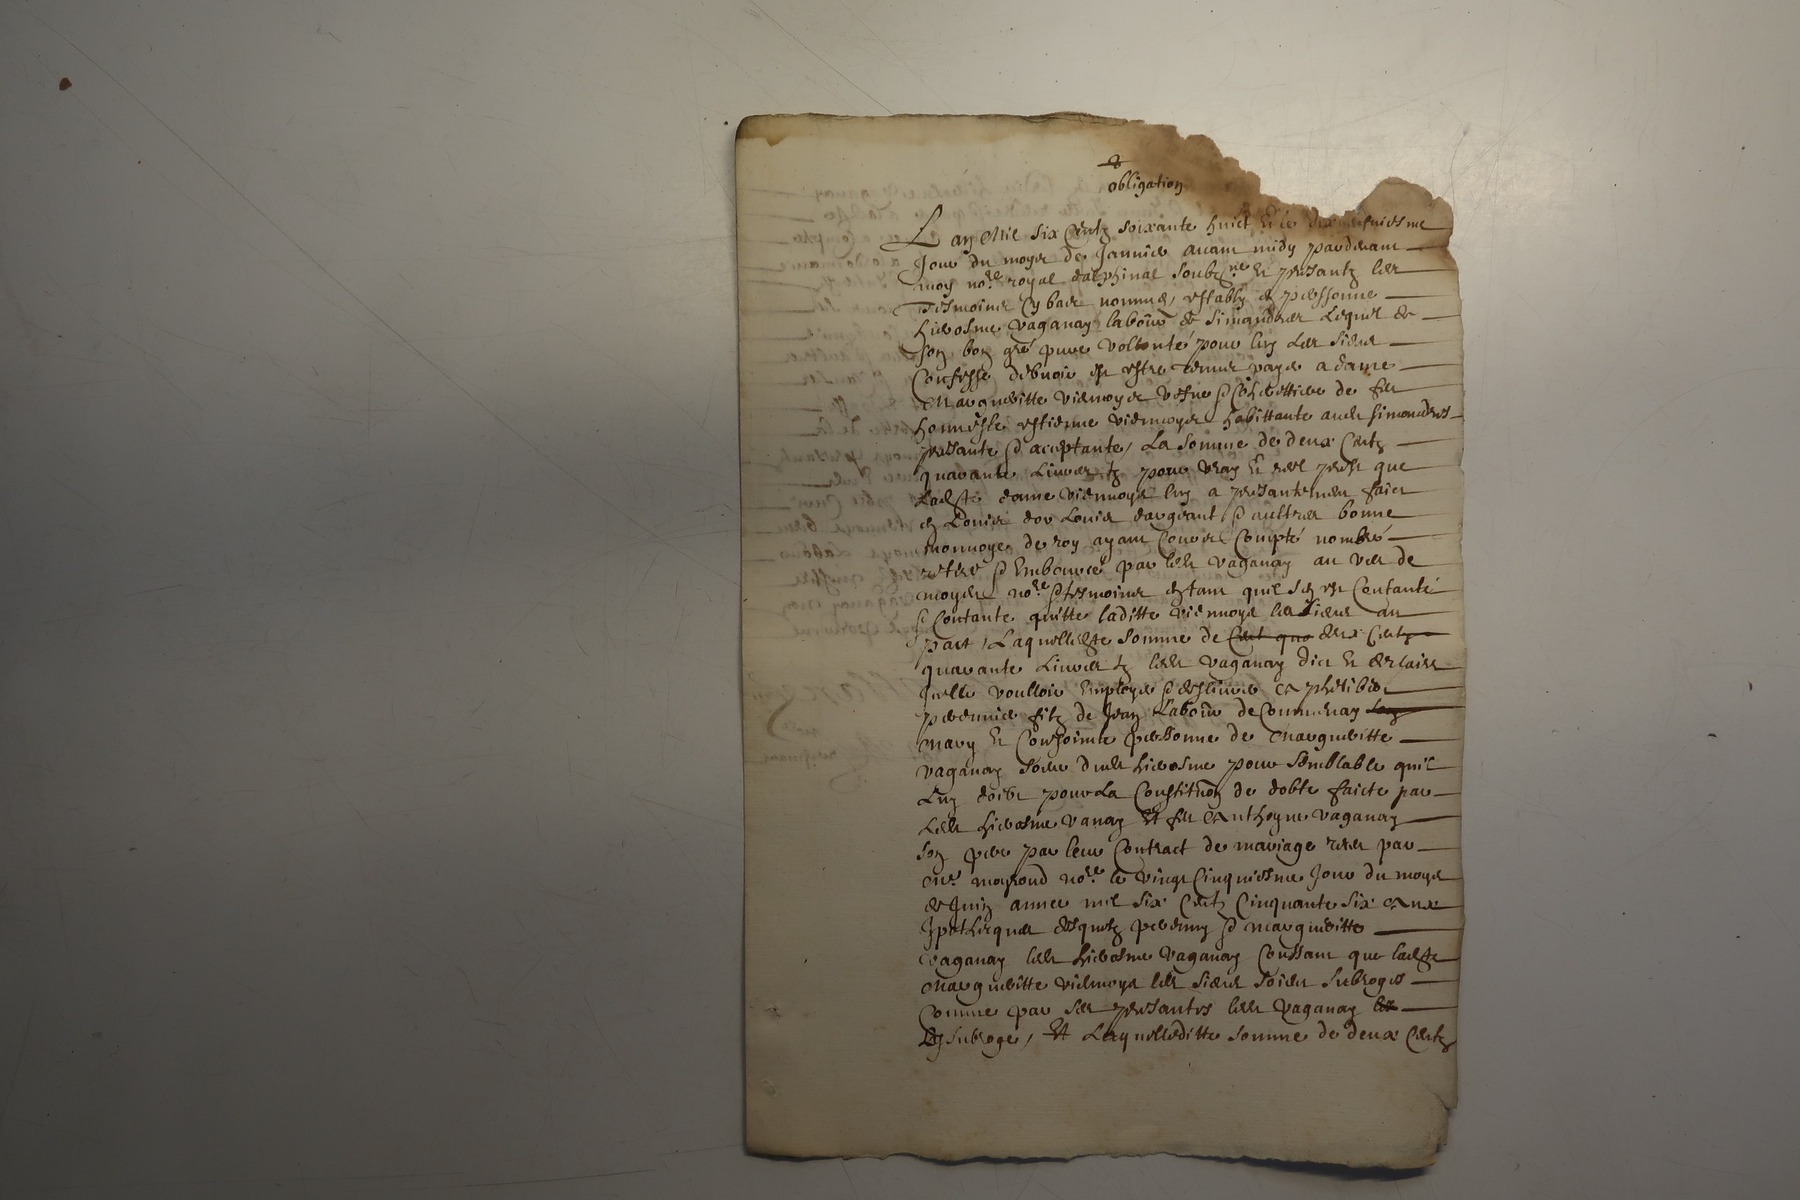 obligation
L an Mil six Centz soixante huict et le dix neufviesme
Jour du moys de Janvier avant midy pardevant
moy no.re royal dalphinal soubz.né et presantz les
Tesmoins cy bas nommés, estably en personne
hierosme vaganay laboûr de simandres Lequel de
son bon gré pure vollonté pour luy les siens
Confesse debvoir et estre tenus payer a dame
Margueritte viennoys vefve et héritiere de feu
honneste estienne viennoys habittante aud simandres
presante et acceptante, La somme de deux Centz
quarante Livres tz pour vray et reel prest que
Ladte dame viennoys luy a presantement faict
en Louis dor Louis dargeant et aultres bonne
monnoye de roy ayant Cours Compté nombré
retiré et Emboursé par led vaganay au veu de
moyd no.re et tesmoins en tant quil sen est Contanté
et Contante quitte laditte viennoys les siens au
part, Laquelledte somme de Cent qua deux Centz
quarante Livres tz led vaganay dict et declaire
Jcelle voulloir Employer et deslivrer a phelibert
pierre filz de Jean Laboûr de Communay
mary et Conjointe personne de Margueritte
vaganay soeur dud hierosme pour semblable quil
Luy doibt pour La Constitu͠on de dobte faicte par
Led hierosme vanay et feu Anthoyne vaganay
son pere par leur Contract de mariage receu par
me. moyroud no.re le vingt Cinquiesme Jour du moys
de Juin annee mil six Centz Cinquante six aux
Jpotheques desquelz et margueritte
vaganay led hierosme vaganay Consant que ladte
Margueritte viennoys les siens soient subrogés
Comme par ses presantes led vaganay
Ley subroge, Et Laquelleditte somme de deux Centz